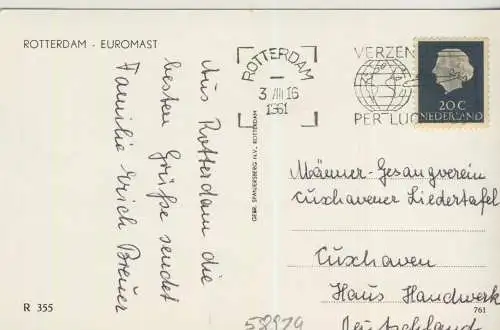 ROTTERDAM - EUROMAST
Aus Rotterdam die
besten Grüße sendet
Familie Erich Breuer
R 355
GEBR. SPANJERSBERG N.V., ROTTERDAM
ROTTERDAM
3 VIII 16
1961
VERZEN
PER LUC
20 C
NEDERLAND
Männer-Gesangverein
Cuxhavener Liedertafel
Cuxhaven
Haus Handwerk
761
Deutschland
58974